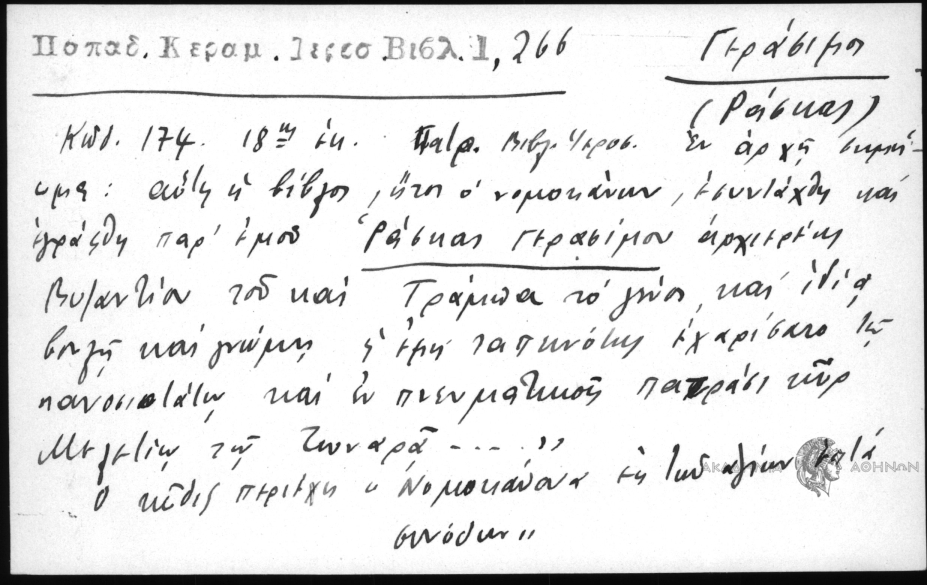 Παπαδ. Κεραμ. Ιεροσ. Βιβλ. 1, 266
Γεράσιμος
(Ράσκας)
Κωδ. 174. 18ης ἑκ. Πατρ. Βιβλ. Ἱεροσ. Ἐν ἀρχῇ σημεί-
ωμα: αὕτη ἡ βίβλος, ἤτοι ὁ νομοκάνων, ἐσυντάχθη καὶ
ἐγράφθη παρ' ἐμοῦ Ῥάσκας Γερασίμου ἀρχιερέως
Βυζαντίου τοῦ καὶ Τράμπα τὸ γένος, καὶ ἰδίᾳ
βουλῇ καὶ γνώμῃ ἡ ἐμὴ ταπεινότης ἐχαρίσατο τῷ
πανοσιωτάτῳ καὶ ἐν πνευματικοῖς πατράσι κῦρ
Μελετίῳ τῷ Τζωναρᾶ - - - . "
Ὁ κῶδιξ περιέχει Νομοκάνονα ἐκ τῶν ἁγίων ἑπτά
συνόδων "
ΑΚΑΔΗΜΙΑ ΑΘΗΝΩΝ